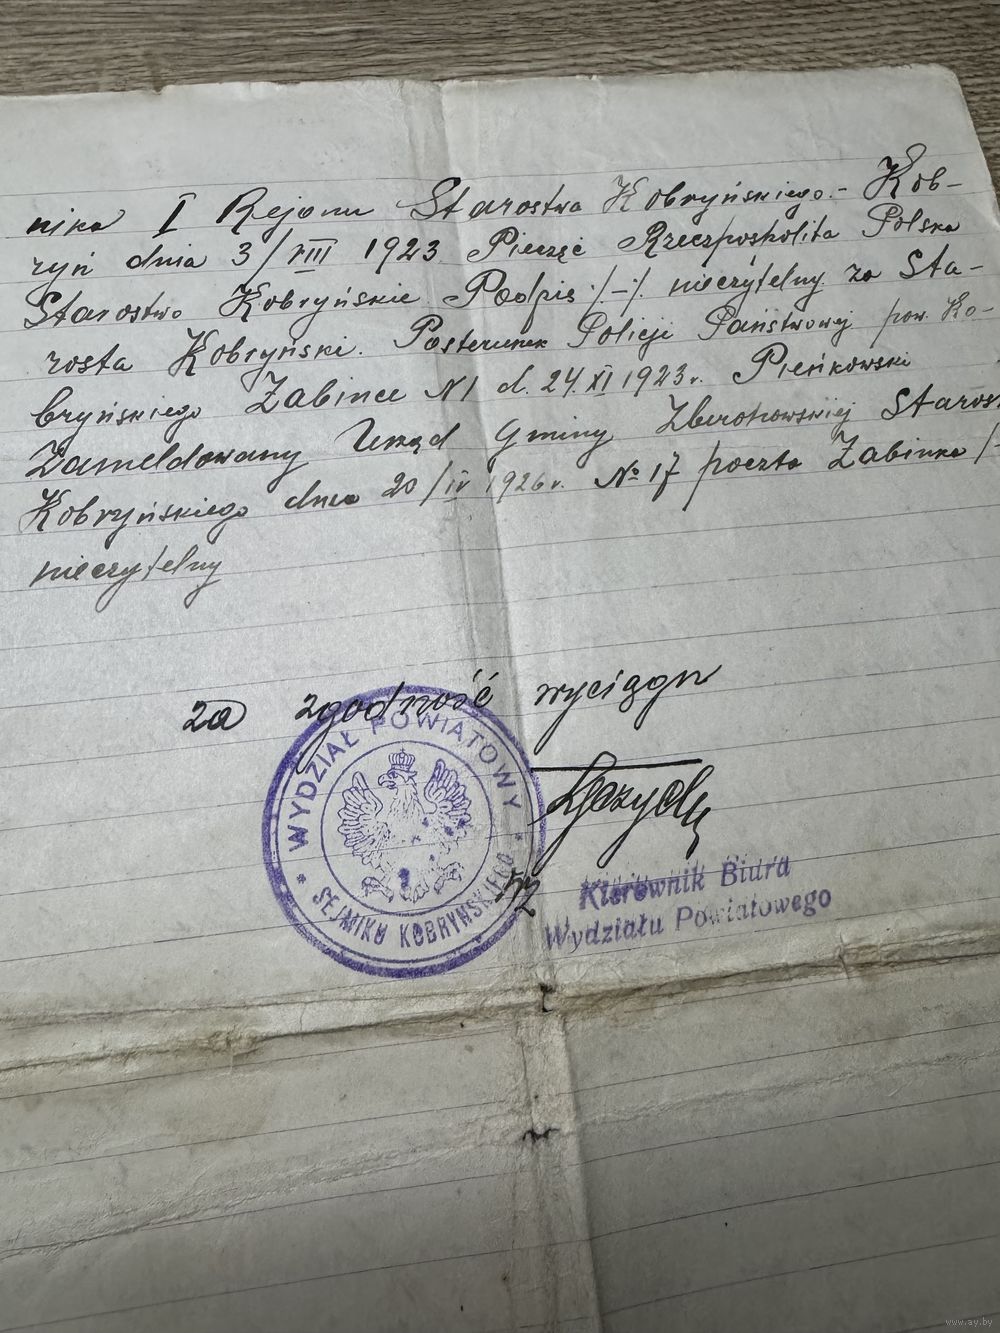 nika I Rejonu Starostwa Kobryńskiego.- Kob-
ryń dnia 3/VIII 1923 Pieczęć Rzeczposholita Polska
Starostwo Kobryńskie. Podpis /-/. nieczytelny. za Sta-
rosta Kobryński. Posterunek Policji Państwowej pow. Ko-
bryńskiego Żabince N1 d. 24.XI 1923r. Pieńkowski
Zameldowany Urząd Gminy Starost
Kobryńskiego dnia 20/IV 1926r. № 17 poczta Żabinka /-
nieczytelny
za zgodność wyciągu
WYDZIAŁ POWIATOWY
* SEJMIKU KOBRYŃSKIEGO *
Kierownik Biura
Wydziału Powiatowego
www.ay.by